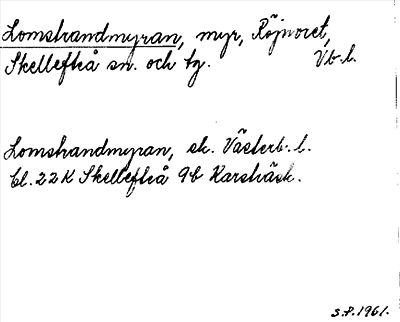 Lomstrandmyran, myr, Röjnoret,
Skellefteå sn. och tg. Vb. l.
Lomstrandmyran, ek. Västerb. l.
bl. 22 K Skellefteå 9b Karsträsk.
S.P. 1961.